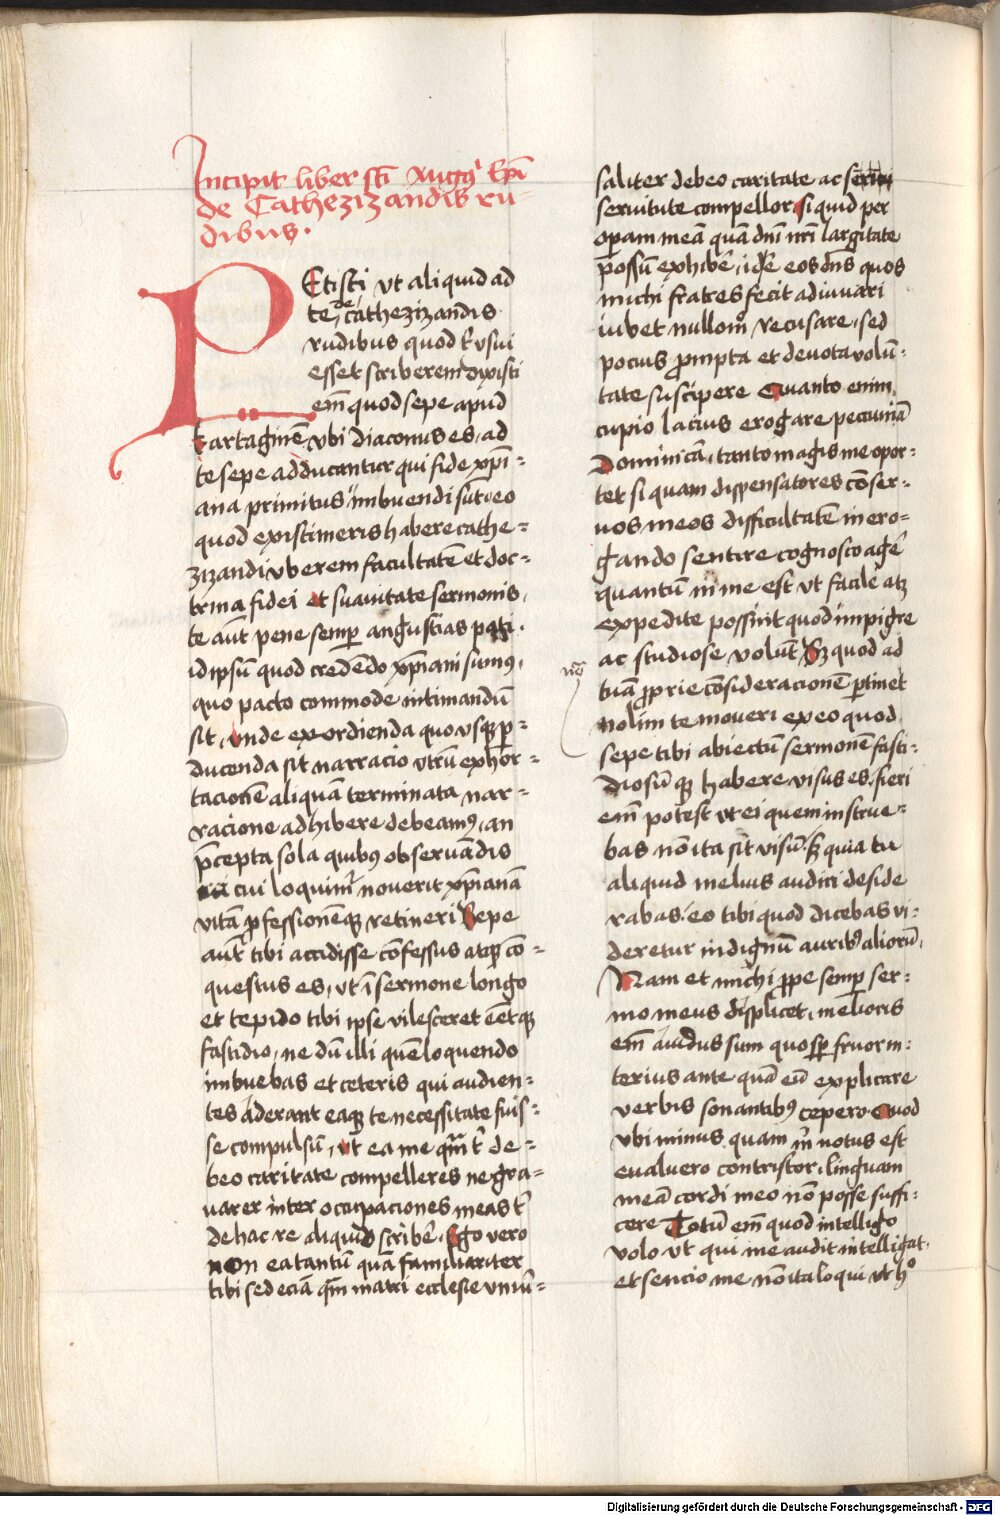 Incipit liber sct̄i Augꝰ Ep̄i
de Cathezizandis ru-
dibus.
PEtisti vt aliquid ad
te de cathezizandis
rudibus quod t͛ vsui
esset scriberem dixisti
em̄ quod sepe apud
kartaginē vbi diaconus es, ad
te sepe adducantur qui fide xp̄i-
ana primitus imbuendi sūt eo
quod existimeris habere cathe-
zizandi vberem facultatē et doc-
trina fidei et suauitate sermonis,
te aūt pene semꝑ angustias pati.
id ipsū quod credendo xp̄iani sumꝰ,
quo pacto commode intimandū
sit, vnde exordienda quo vsqꝫ ꝑ-
ducenda sit narracio vtrū exhor-
tacionē aliquā terminata nar-
racione adhibere debeamꝰ, an
p̄cepta sola quibꝰ obseruādis
cui loquimͬ nouerit xp̄ianā
vitā ꝓfessionemqꝫ retineri Sepe
aūt tibi accidisse cōfessus atqꝫ cō-
questus es, vt ī sermone longo
et tepido tibi ipse vilesceret eētqꝫ
fastidio, ne dū illi quē loquendo
imbuebas et ceteris qui audien-
tes aderant eaqꝫ te necessitate fuis-
se compulsū, vt ea me qm̄ t͛ de-
beo caritate compelleres ne gra-
uarer inter occupaciones meas t͛
de hac re aliquid scribē. Ego vero
non ea tantū quā familiariter
tibi sed eciā qm̄ matri ecclesie vniu͛-
saliter debeo caritate ac
seruitute compellor si quid per
oꝑam meā quā dn̄i nr̄i largitate
possū exhibē, idē eos dn̄s quos
michi fratres fecit adiuuari
iubet nullom̊ recusare, sed
pocius ꝓmpta et deuota volū-
tate suscipere Quanto enim
cupio lacius erogare pecuniā
Dominicā, tanto magis me opor-
tet si quam dispensatores cōser-
uos meos difficultatē in ero-
gando sentire cognosco agē
quantū in me est vt facile atqꝫ
expedite possint quod impigre
ac studiose volūt Sꝫ quod ad
tuā ꝓprie cōsideracionē ꝑtinet
nolim te moueri ex eo quod
sepe tibi abiectū sermonē fasti-
diosūqꝫ habere visus es, fieri
em̄ potest vt ei quem instrue-
bas nō ita sit visū. sꝫ quia tu
aliquid melius audiri deside
rabas, eo tibi quod dicebas vi-
deretur indignū auribꝰ aliorū,
Nam et michi ꝓpe semꝑ ser-
mo meus displicet, melioris
em̄ auidus sum quo sepe fruor in-
terius ante quā eū explicare
verbis sonantibꝰ cepero Quod
vbi minus quam m̄ notus est
eualuero contristor, linguam
meā cordi meo nō posse suffi-
cere Totū em̄ quod intelligo
volo vt qui me audit intelligat,
et sencio me nō ita loqui vt hͦ
Digitalisierung gefördert durch die Deutsche Forschungsgemeinschaft - DFG